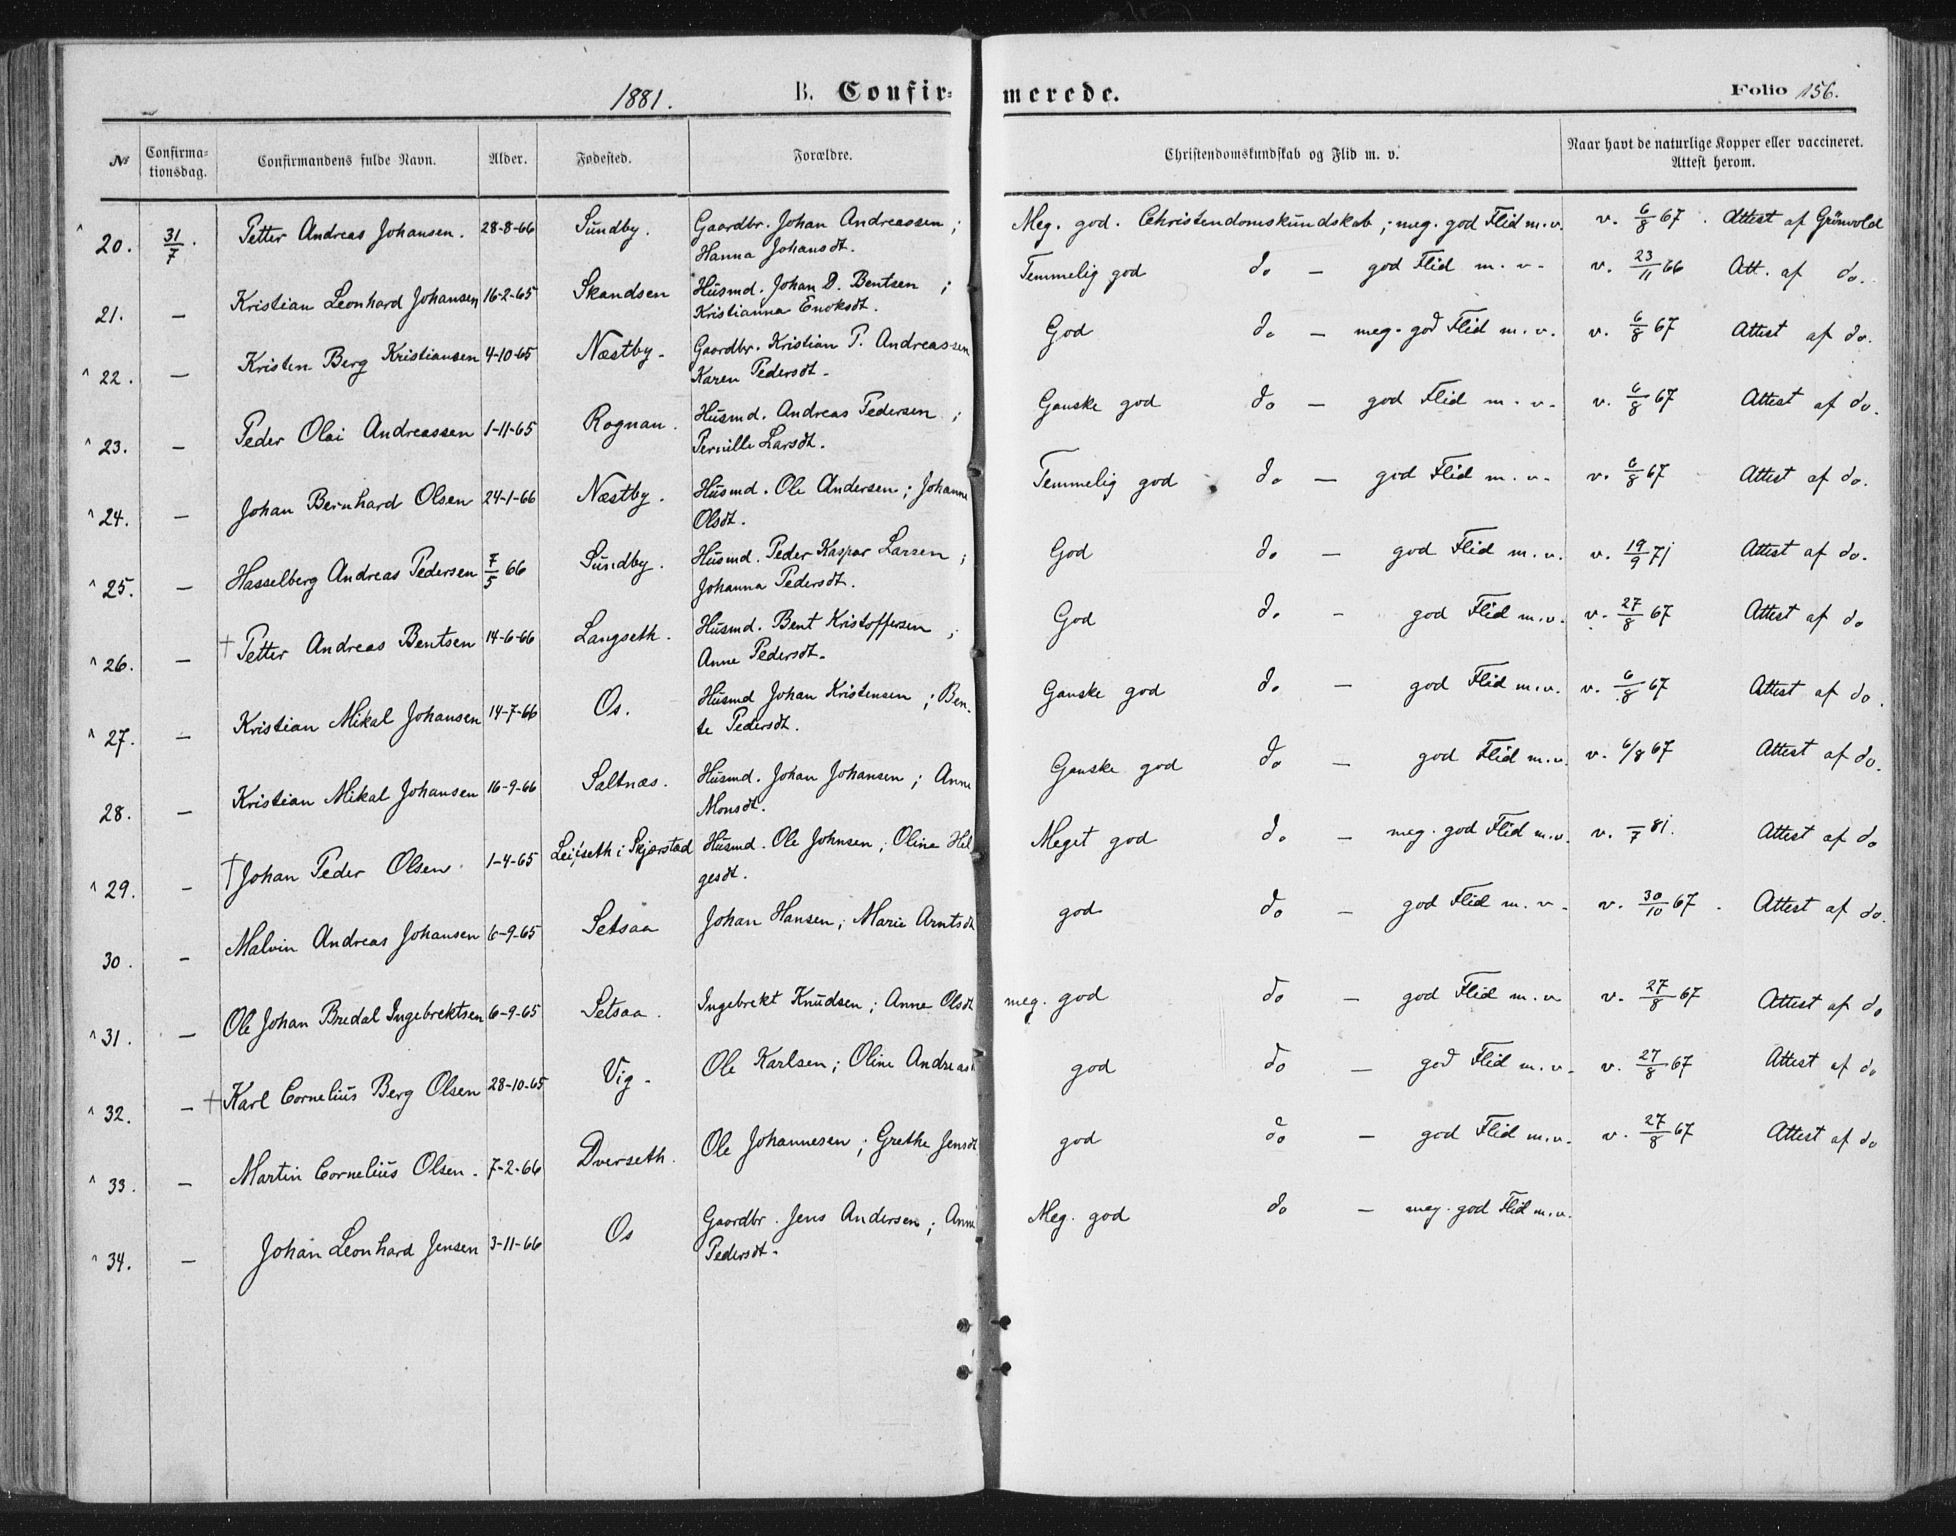 1881. B. Confir- merede. Folio 156.
№ Confirma-tionsdag. Confirmandens fulde Navn. Alder. Fødested. Forældre. Christendomskundskab og Flid m. v. Naar havt de naturlige Kopper eller vaccineret. Attest herom.
20. 31/7. Petter Andreas Johansen. 28-8-66 Sundby. Gaardbr. Johan Andreassen; Meg. god. Christendomskundskab; meg. god Flid m.v. v. 6/8 67. Attest af Grönvold
Hanna Johansdt.
21. — Kristian Leonhard Johansen 16-2-65 Skandsen Husmd. Johan D. Bentsen; Temmelig god do — god Flid m. v. v. 23/11 66 Att. af do.
Kristianna Enoksdt.
22. — Kristen Berg Kristiansen 4-10-65 Næstby. Gaardbr. Kristian P. Andreassen God do — meg. god Flid m. v. v. 6/8 67 Attest af do.
Karen Pedersdt.
23. — Peder Olai Andreassen 1-11-65 Rognan. Husmd. Andreas Pedersen; Ganske god do — god Flid m. v. v. 6/8 67 Attest af do.
Pernille Larsdt.
24. — Johan Bernhard Olsen 24-1-66 Næstby. Husmd. Ole Andersen; Johanne Temmelig god do — god Flid m. v. v. 6/8 67 Attest af do.
Olsdt.
25. — Hasselberg Andreas Pedersen 7/5 66 Sundby. Husmd. Peder Kaspar Larsen; God do — god Flid m. v. v. 19/9 71 Attest af do.
Johanna Pedersdt.
26. — † Petter Andreas Bentsen 14-6-66 Langseth. Husmd. Bent Kristoffersen; God do — god Flid m.v. v. 27/8 67 Attest af do
Anne Pedersdt.
27. — Kristian Mikal Johansen 14-7-66 Os. Husmd Johan Kristensen; Ben- Ganske god do — god Flid m.v. v. 6/8 67 Attest af do.
te Pedersdt.
28. — Kristian Mikal Johansen 16-9-66 Saltnæs. Husmd. Johan Johansen; Anne Ganske god do — god Flid m.v. v. 6/8 67 Attest af do.
Monsdt.
29. — † Johan Peder Olsen 1-4-65 Leifseth i Skjerstad Husmd. Ole Johnsen; Oline Hel Meget god do — meg. god Flid m.v. v. –/7 81. Attest af do
gesdt.
30. — Malvin Andreas Johansen 6-9-65 Setsaa Johan Hansen; Marie Arntsdt god do — god Flid m. v. v. 30/10 67. Attest af do.
31. — Ole Johan Bredal Ingebrektsen 6-9-65 Setsaa. Ingebrekt Knudsen; Anne Olsdt meg. god do — god Flid m. v v. 27/8 67 Attest af do
32. — † Karl Cornelius Berg Olsen 28-10-65 Vig. Ole Karlsen; Oline Andreas god do — god Flid m. v. v. 27/8 67 Attest af do
33. — Martin Cornelius Olsen. 7-2-66 Dverseth. Ole Johannesen; Grethe Jensdt god do — god Flid m.v. v. 27/8 67 Attest af do
34. — Johan Leonhard Jensen 3-11-66 Os Gaardbr. Jens Andersen; Anne Meg. god do — meg. god Flid m.v.
Pedersdt.